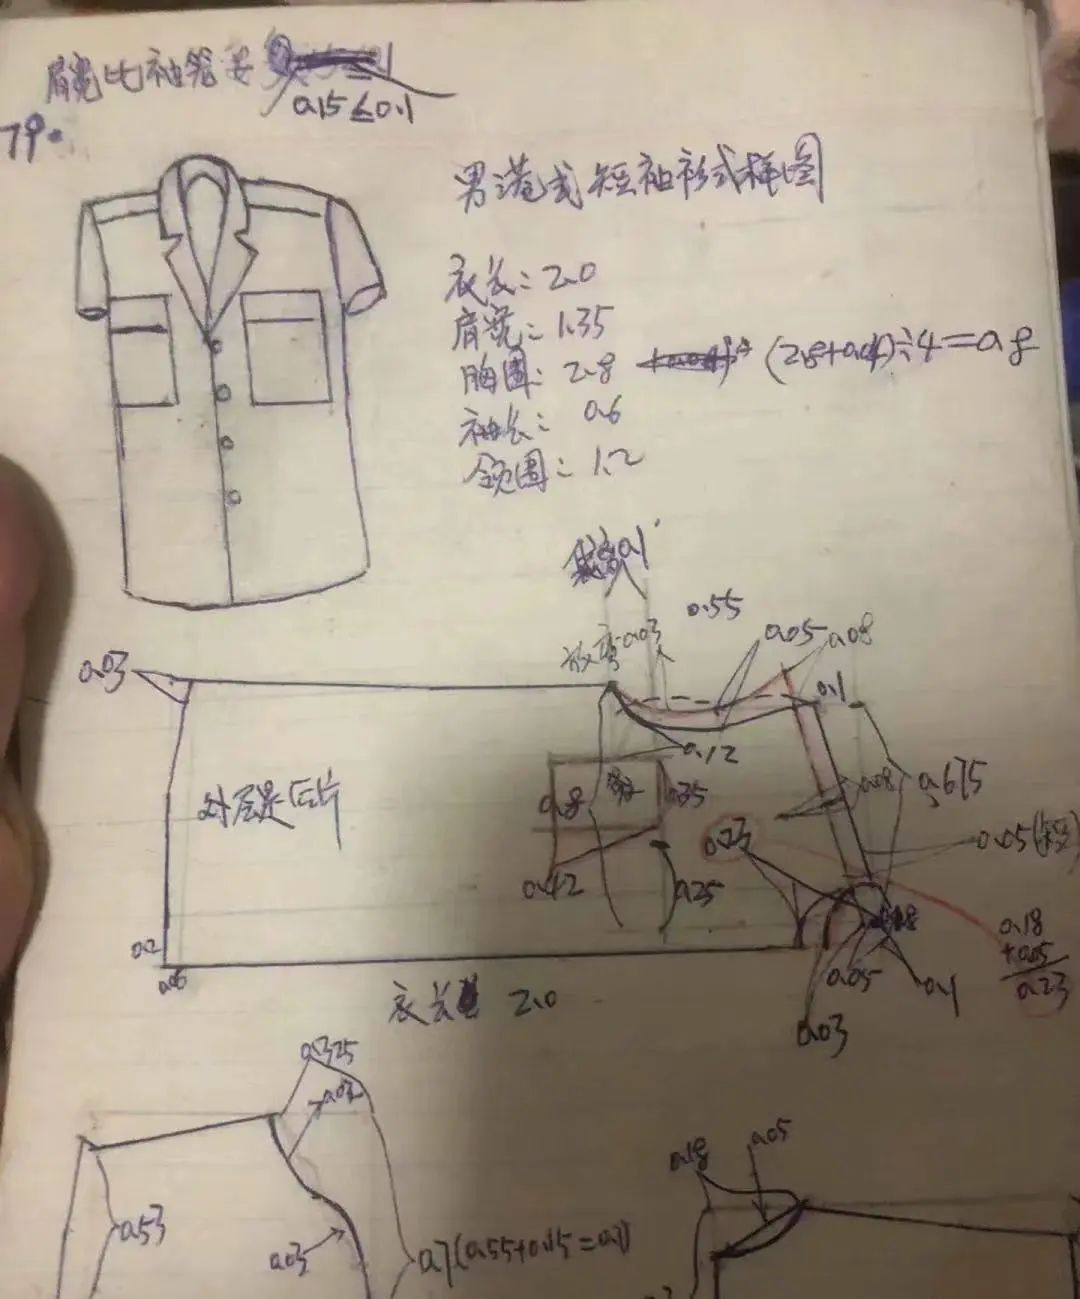 肩宽比袖笼要
0.15≤0.1
79.
男港式短袖衫式样图
衣长：2.0
肩宽：1.35
胸围：2.8 (2.8+0.4)÷4=0.8
袖长：0.6
领围：1.2
0.1
0.55
放弯0.03
0.05
0.08
0.03
0.1
0.12
0.8
0.35
0.08
0.675
外层是后片
0.23
0.05
0.42
0.25
0.2
0.18
+0.05
0.23
0.05
0.1
衣长 2.0
0.03
0.325
0.03
0.18
0.05
0.53
0.03
0.7(0.55+0.15=0.7)